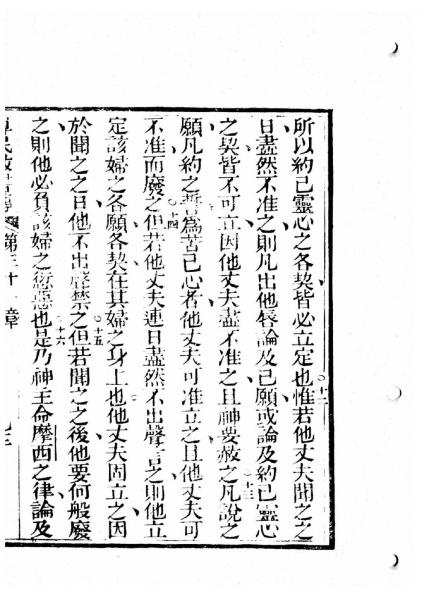 所以約己靈心之各契皆必立定也○十二惟若他丈夫聞之之
日盡然不准之則凡出他唇論及己願或論及約己靈心
之契皆不可立因他丈夫盡不准之且神要赦之○十三凡說之
願凡約之誓為苦己心者他丈夫可准立之且他丈夫可
不准而廢之○十四但若他丈夫連日盡然不出聲言之則他立
定該婦之各願各契在其婦之身上也他丈夫固立之因
於聞之之日他不出聲禁之○十五但若聞之之後他要何般廢
之則他必負該婦之愆惡也○十六是乃神主命摩西之律論及
第三十章